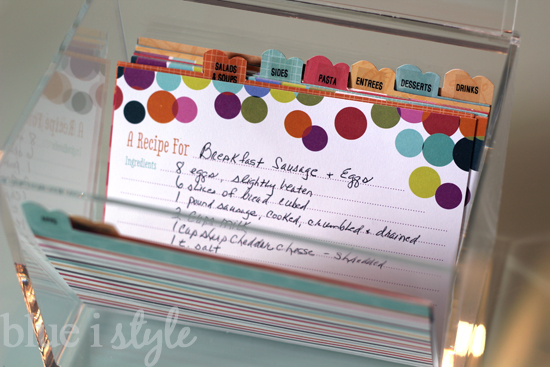 SALADS
& SOUPS
SIDES
PASTA
ENTREES
DESSERTS
DRINKS
A Recipe For Breakfast Sausage + Eggs
Ingredients 8 eggs, slightly beaten
6 slices of bread cubed
1 pound sausage, cooked, crumbled + drained
2 cups
1 cup sharp cheddar cheese - shredded
1 t. salt
blue i style